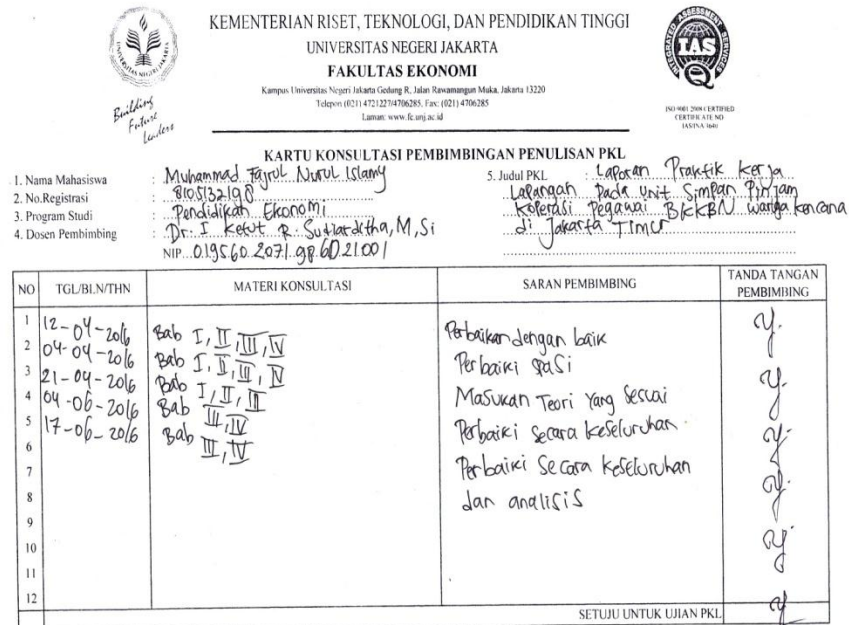 KEMENTERIAN RISET, TEKNOLOGI, DAN PENDIDIKAN TINGGI
UNIVERSITAS NEGERI JAKARTA
FAKULTAS EKONOMI
Kampus Universitas Negeri Jakarta Gedung R, Jalan Rawamangun Muka, Jakarta 13220
Telepon (021) 4721227/4706285, Fax: (021) 4706285
Laman: www.fe.unj.ac.id
Building
Future
Leaders
INTEGRATED ASSESSMENT SERVICES
IAS
ISO 9001:2008 CERTIFIED
CERTIFICATE NO
KARTU KONSULTASI PEMBIMBINGAN PENULISAN PKL
1. Nama Mahasiswa : Muhammad Fajrul Nurul Islamy
2. No.Registrasi : 8105132198
3. Program Studi : Pendidikan Ekonomi
4. Dosen Pembimbing : Dr. I Ketut R. Sudiarditha, M,Si
NIP
5. Judul PKL : Laporan Praktik Kerja
Lapangan Pada Unit Simpan Pinjam
Koperasi Pegawai BKKBN Warga Kencana
di Jakarta Timur
NO TGL/BLN/THN MATERI KONSULTASI SARAN PEMBIMBING TANDA TANGAN PEMBIMBING
1 12-04-2016 Bab I, II, III, IV Perbaikan dengan baik
2 04-04-2016 Bab I, II, III, IV Perbaiki spasi
3 21-04-2016 Bab I, II, III Masukan Teori Yang Sesuai
4 04-06-2016 Bab III, IV Perbaiki secara keseluruhan
5 17-06-2016 Bab III, IV Perbaiki Secara keseluruhan
6 dan analisis
7
8
9
10
11
12
SETUJU UNTUK UJIAN PKL